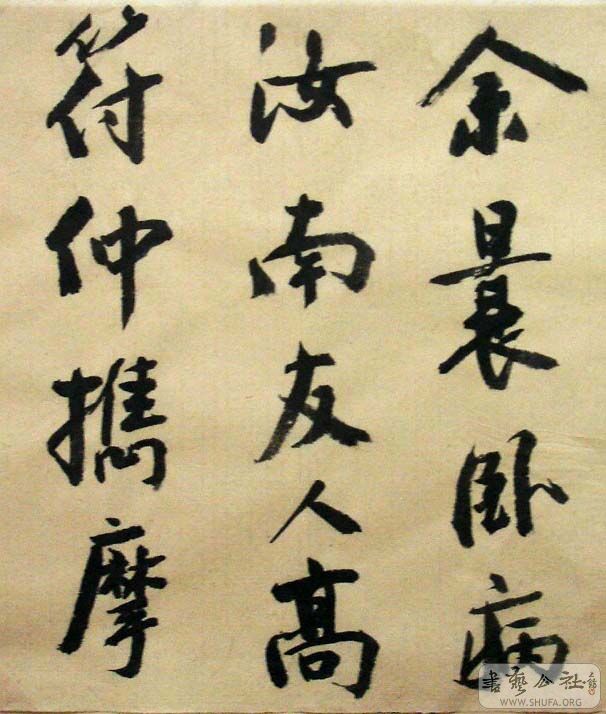 余曩卧病
汝南友人高
符仲攜摩
書藝公社
WWW.SHUFA.ORG